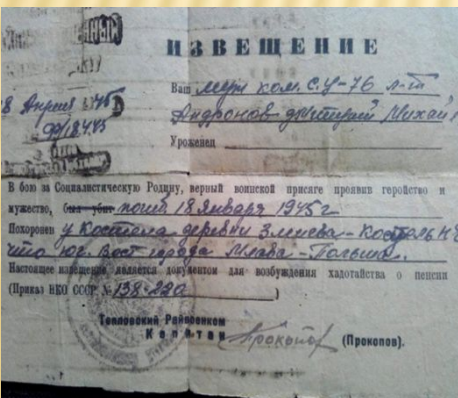 ИЗВЕЩЕНИЕ
Ваш муж ком. С.У-76 л-т
8 Апреля 1945
Андронов Дмитрий Михай
99/8445
Уроженец
В бою за Социалистическую Родину, верный воинской присяге проявив геройство и
мужество, был убит погиб 18 января 1945 г
Похоронен у Костела деревни Змиева-Костельн
что юг. вост города Млава-Польша.
Настоящее извещение является документом для возбуждения ходатойства о пенсии
(Приказ НКО СССР № 138-220 )
Тепловский Райвоенком
Капитан Прокопов (Прокопов).